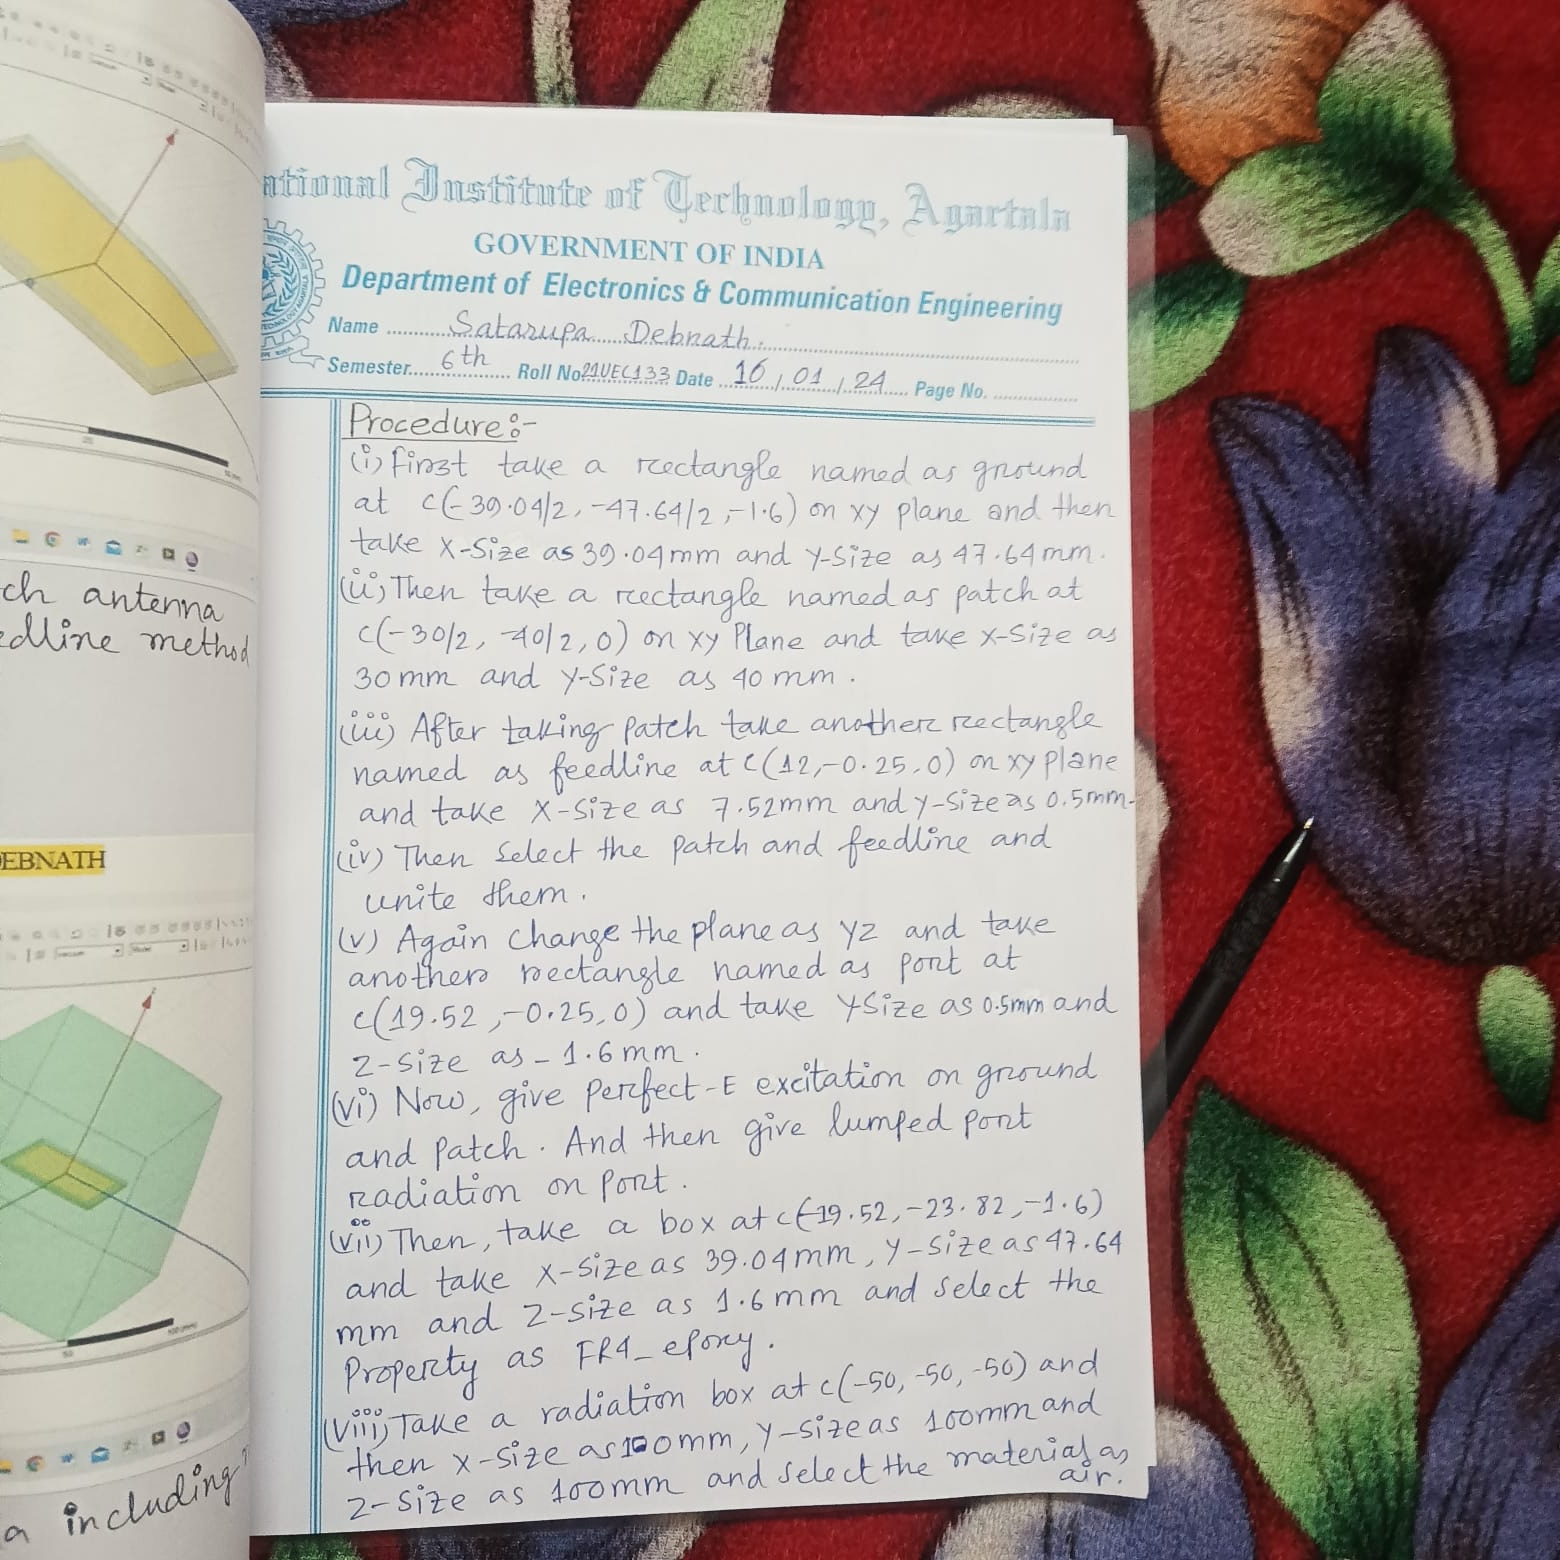 ch antenna
edline method
EBNATH
a including
ational Institute of Technology, Agartala
GOVERNMENT OF INDIA
Department of Electronics & Communication Engineering
Name Satarupa Debnath.
Semester 6th Roll No 21UEC133 Date 16/01/24 Page No.
Procedure:-
(i) first take a rectangle named as ground
at c(-39.04/2, -47.64/2, -1.6) on xy plane and then
take X-Size as 39.04mm and Y-Size as 47.64mm.
(ii) Then take a rectangle named as patch at
c(-30/2, -40/2, 0) on xy Plane and take X-Size as
30mm and Y-Size as 40mm.
(iii) After taking Patch take another rectangle
named as feedline at c(12, -0.25, 0) on xy plane
and take X-Size as 7.52mm and Y-Size as 0.5mm.
(iv) Then Select the Patch and feedline and
unite them.
(v) Again change the plane as YZ and take
another rectangle named as port at
c(19.52, -0.25, 0) and take YSize as 0.5mm and
Z-Size as -1.6mm.
(vi) Now, give Perfect-E excitation on ground
and Patch. And then give lumped port
radiation on Port.
(vii) Then, take a box at c(-19.52, -23.82, -1.6)
and take X-Size as 39.04mm, Y-Size as 47.64
mm and Z-Size as 1.6mm and select the
Property as FR4_epoxy.
(viii) Take a radiation box at c(-50, -50, -50) and
then X-Size as 100mm, Y-Size as 100mm and
Z-Size as 100mm and select the material as
air.